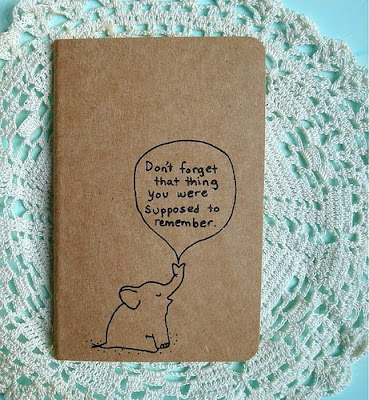 Don't forget
that thing
you were
supposed to
remember.